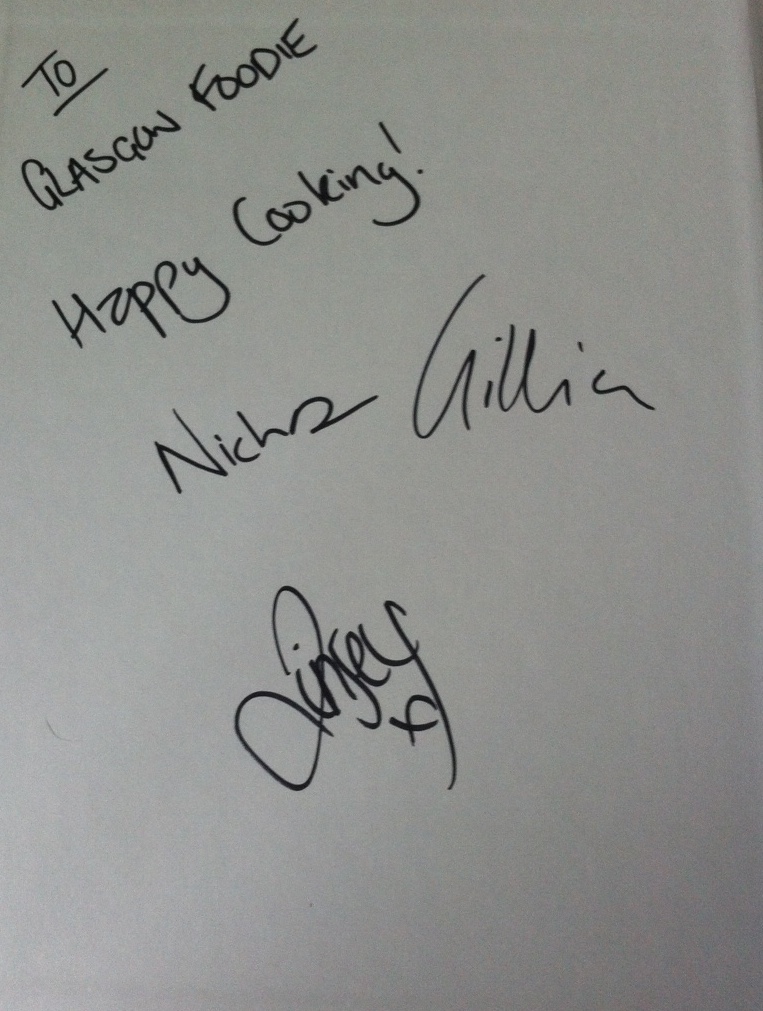 TO
GLASGOW FOODIE
Happy Cooking!
Nichola Gillian
Linsey x